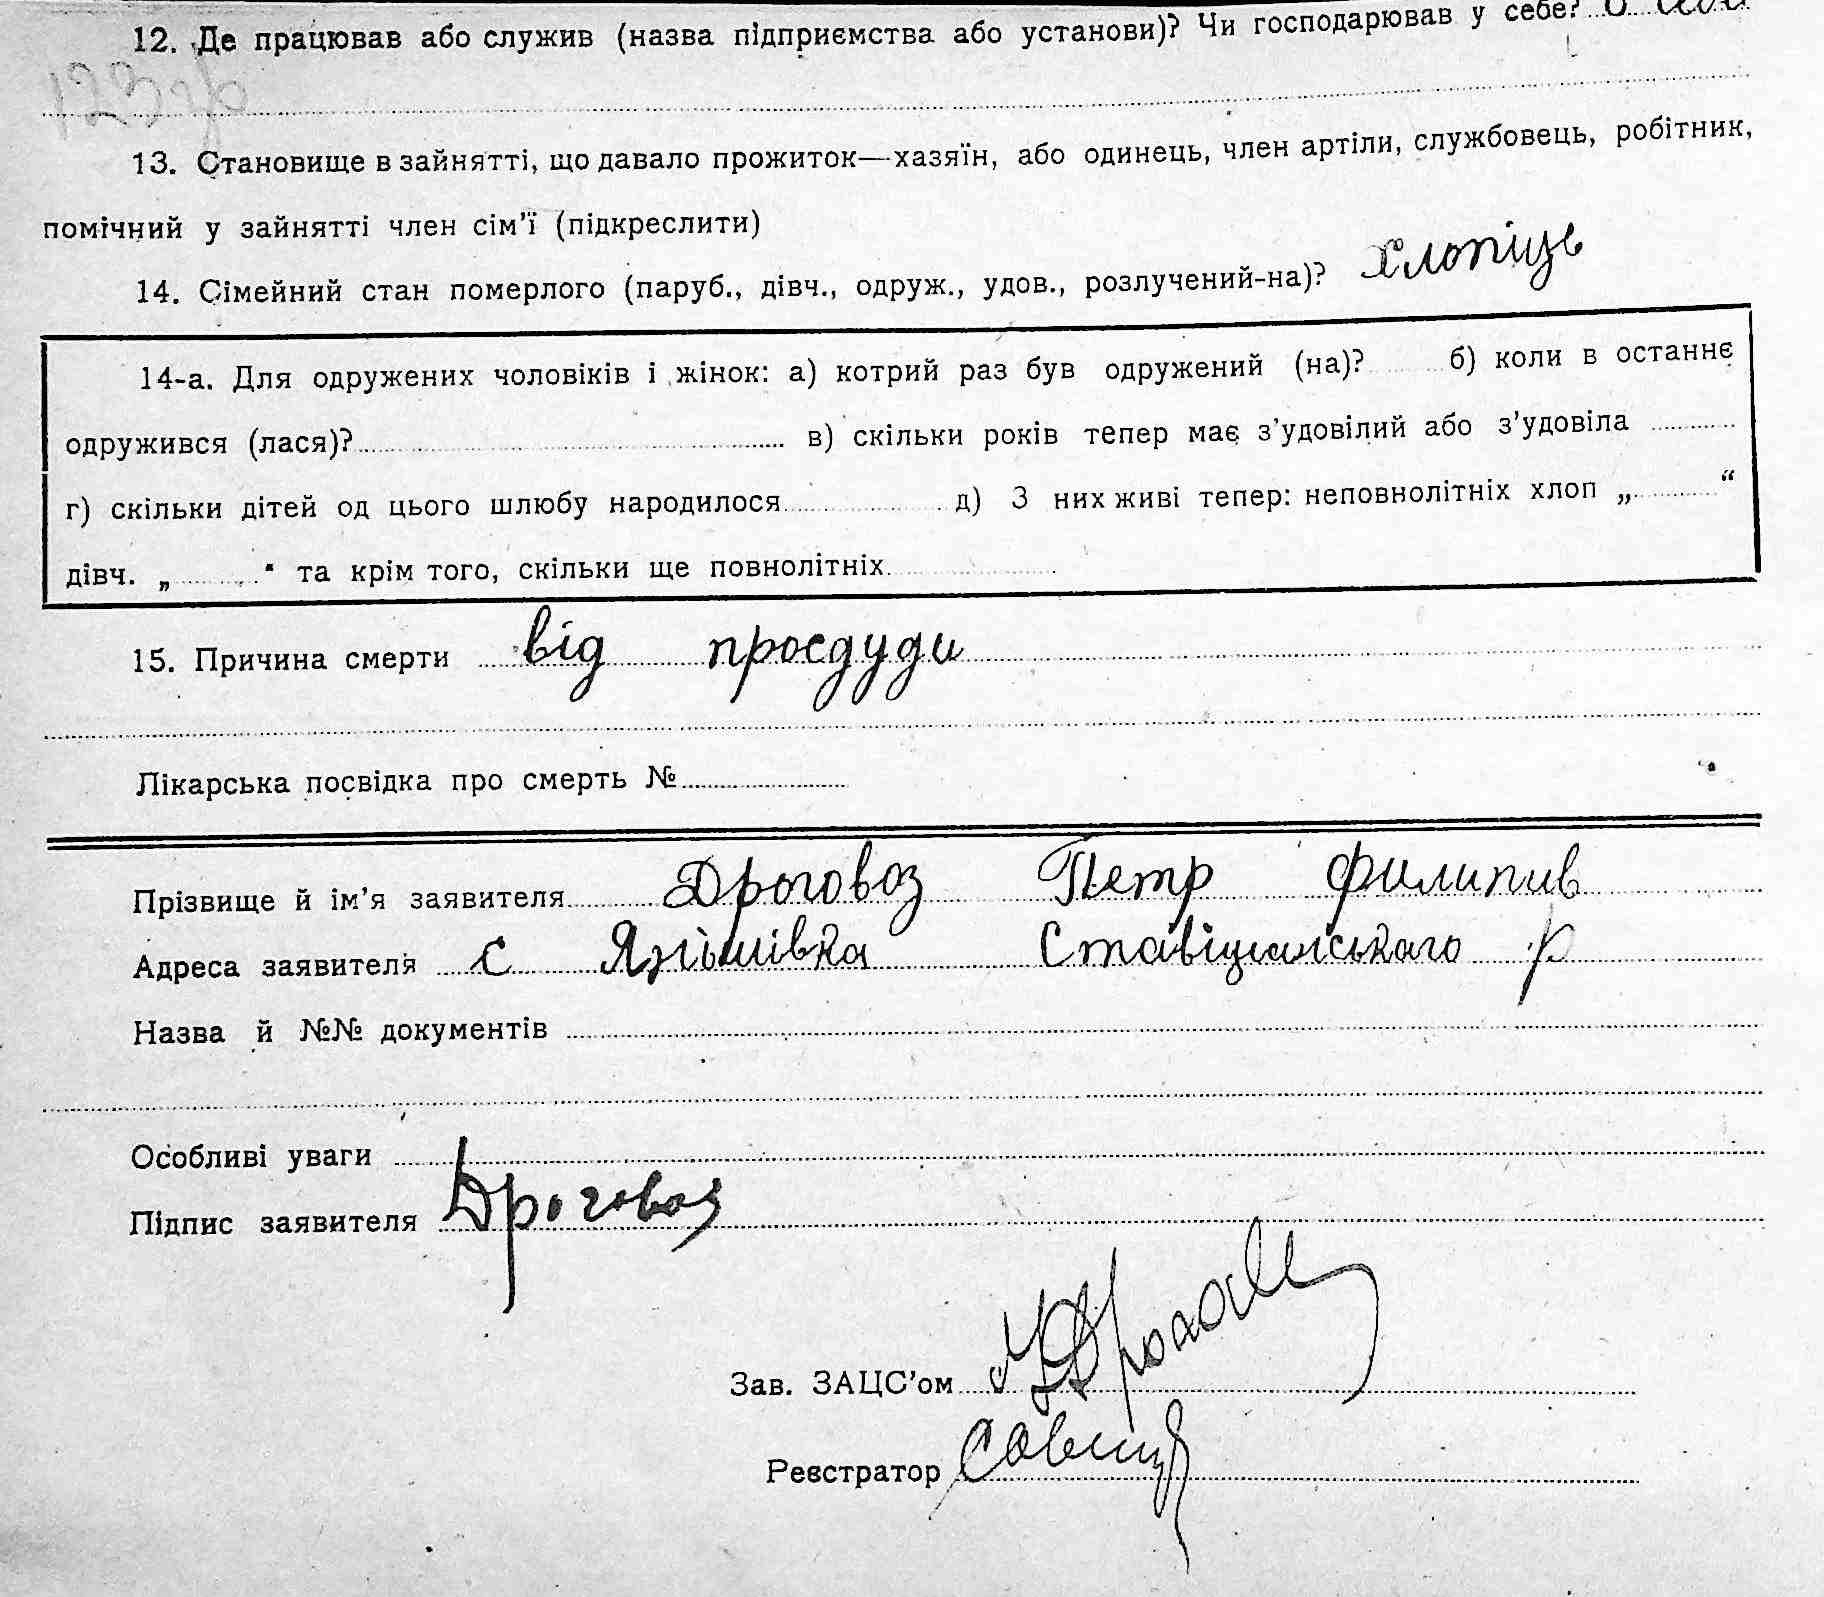 12. Де працював або служив (назва підприємства або установи)? Чи господарював у себе?
13. Становище в зайнятті, що давало прожиток—хазяїн, або одинець, член артіли, службовець, робітник,
помічний у зайнятті член сім'ї (підкреслити)
14. Сімейний стан померлого (паруб., дівч., одруж., удов., розлучений-на)? хлопіць
14-а. Для одружених чоловіків і жінок: а) котрий раз був одружений (на)? б) коли в останнє
одружився (лася)? в) скільки років тепер має з'удовілий або з'удовіла
г) скільки дітей од цього шлюбу народилося д) З них живі тепер: неповнолітніх хлоп „ “
дівч. „ “ та крім того, скільки ще повнолітніх
15. Причина смерти від проєдуди
Лікарська посвідка про смерть №
Прізвище й ім'я заявителя Дроговоз Петр Филипив
Адреса заявителя с Ставіщанського р
Назва й №№ документів
Особливі уваги
Підпис заявителя Дроговоз
Зав. ЗАЦС'ом
Реєстратор